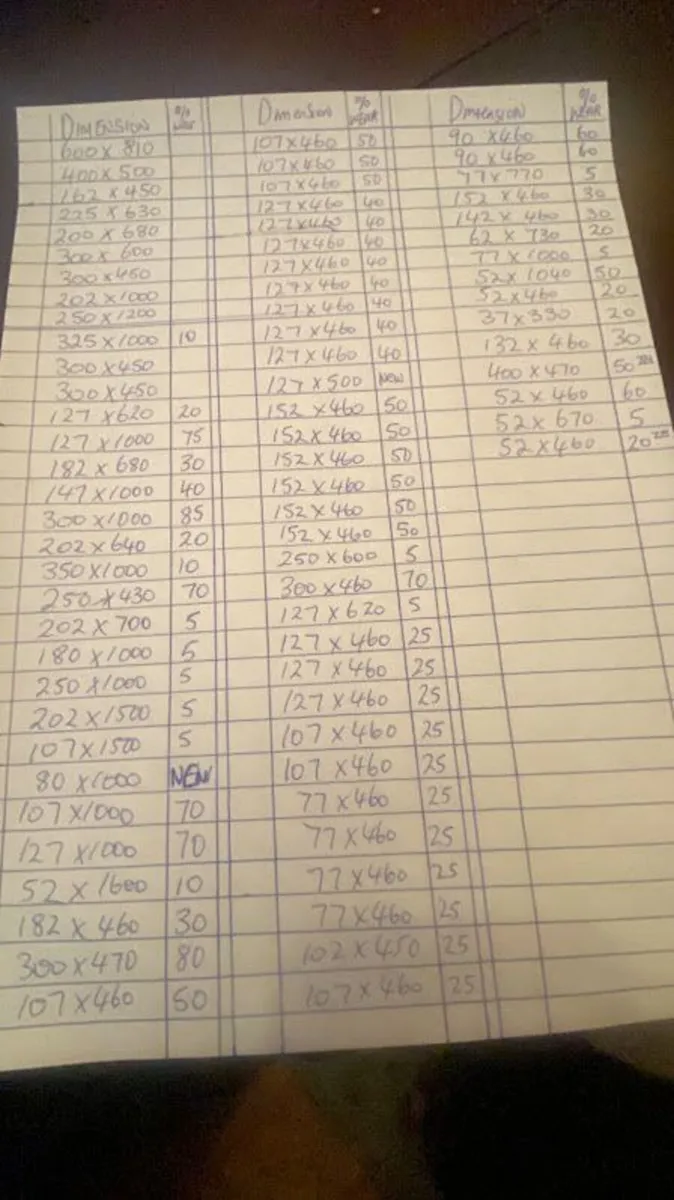 DIMENSION % WEAR
600 x 810
400 x 500
162 x 450
225 x 630
200 x 680
300 x 600
300 x 450
202 x 1000
250 x 1200
325 x 1000 10
300 x 450
300 x 450
127 x 620 20
127 x 1000 75
182 x 680 30
147 x 1000 40
300 x 1000 85
202 x 640 20
350 x 1000 10
250 x 430 70
202 x 700 5
180 x 1000 5
250 x 1000 5
202 x 1500 5
107 x 1500 5
80 x 1000 NEW
107 x 1000 70
127 x 1000 70
52 x 1600 10
182 x 460 30
300 x 470 80
107 x 460 50
Dimension % WEAR
107 x 460 50
107 x 460 50
107 x 460 50
127 x 460 40
127 x 460 40
127 x 460 40
127 x 460 40
127 x 460 40
127 x 460 40
127 x 460 40
127 x 460 40
127 x 500 NEW
152 x 460 50
152 x 460 50
152 x 460 50
152 x 460 50
152 x 460 50
152 x 460 50
250 x 600 5
300 x 460 70
127 x 620 5
127 x 460 25
127 x 460 25
127 x 460 25
107 x 460 25
107 x 460 25
77 x 460 25
77 x 460 25
77 x 460 25
77 x 460 25
102 x 450 25
107 x 460 25
Dimension % WEAR
90 x 460 60
90 x 460 60
77 x 770 5
152 x 460 30
142 x 460 30
62 x 730 20
77 x 1000 5
52 x 1040 50
52 x 460 20
37 x 330 20
132 x 460 30
400 x 470 50
52 x 460 60
52 x 670 5
52 x 460 20